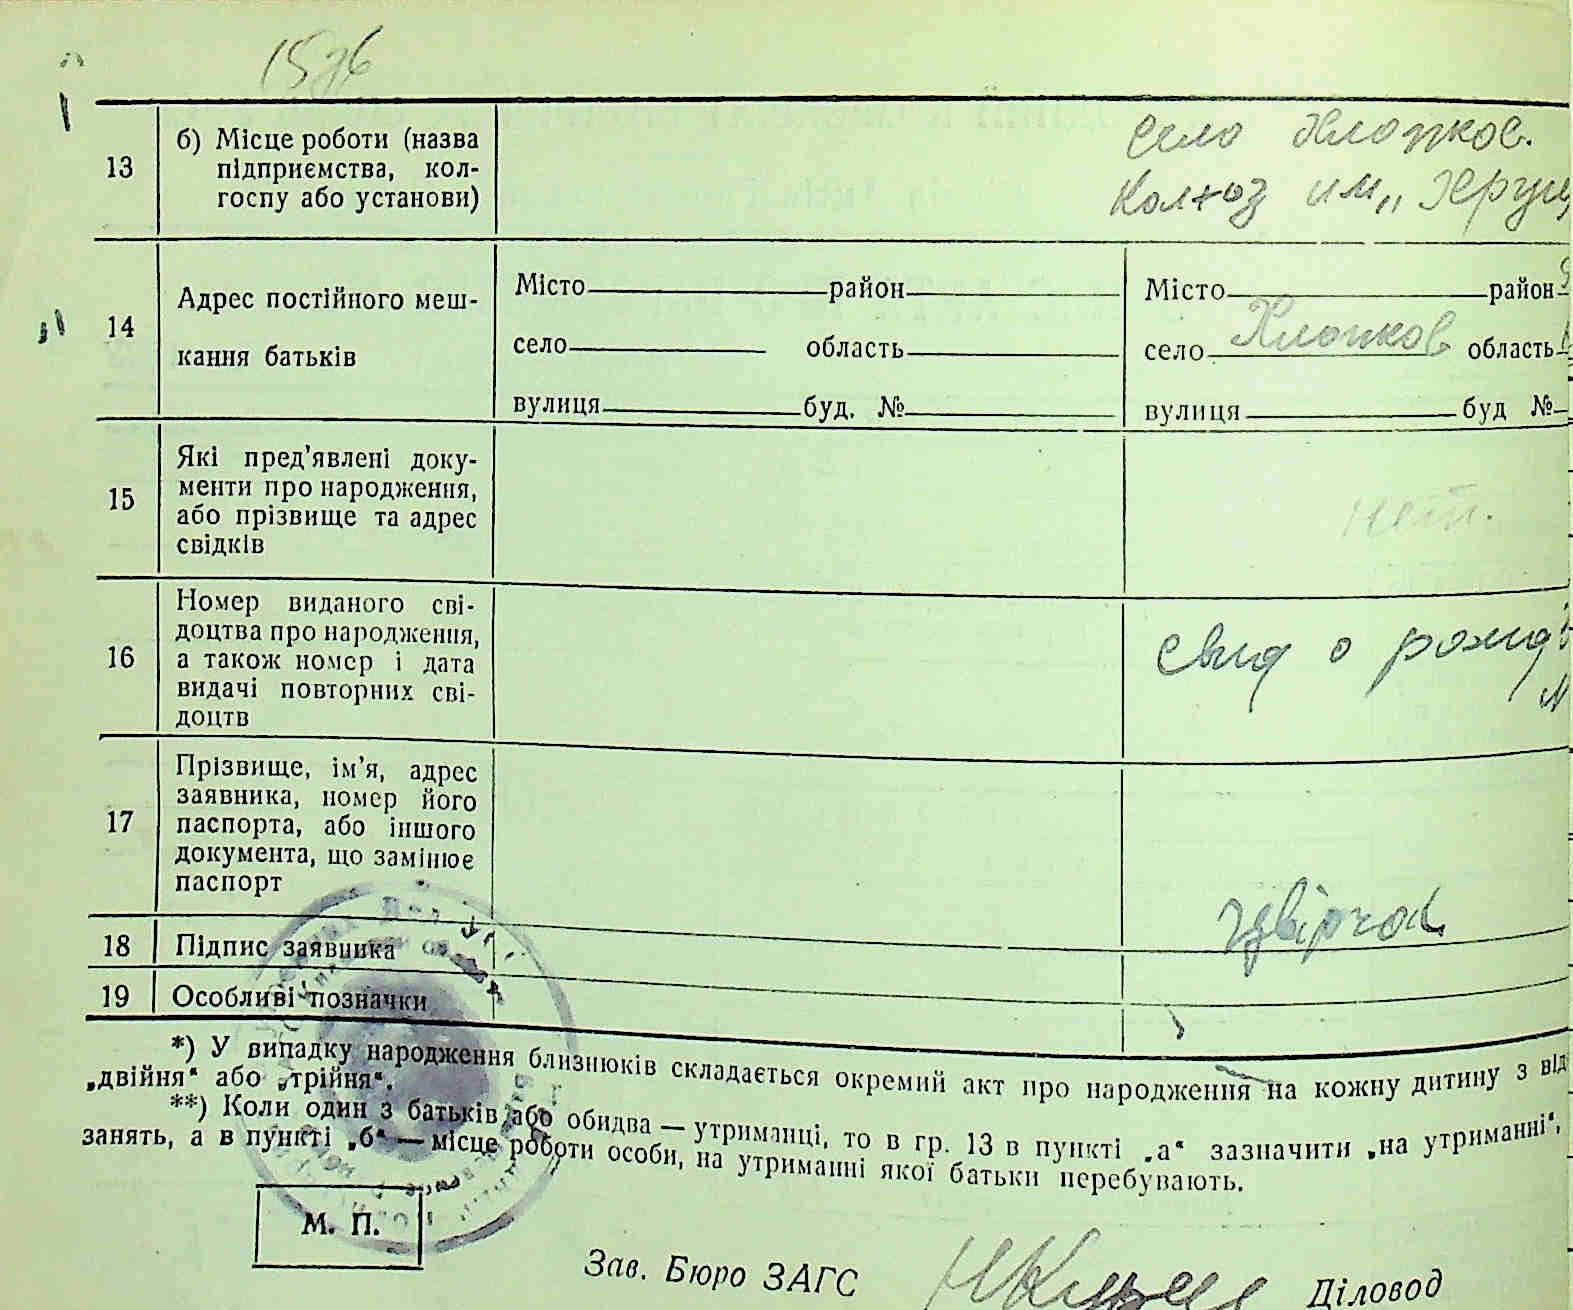 13
б) Місце роботи (назва
підприємства, кол-
госпу або установи)
село Хлопков.
колхоз им „Хрущ
14
Адрес постійного меш-
кання батьків
Місто район
село область
вулиця буд. №
Місто район
село Хлопков область
вулиця буд №
15
Які пред’явлені доку-
менти про народження,
або прізвище та адрес
свідків
нет.
16
Номер виданого сві-
доцтва про народження,
а також номер і дата
видачі повторних сві-
доцтв
свид о рожд
17
Прізвище, ім’я, адрес
заявника, номер його
паспорта, або іншого
документа, що замінює
паспорт
18
Підпис заявника
19
Особливі позначки
*) У випадку народження близнюків складається окремий акт про народження на кожну дитину з від
„двійня“ або „трійня“.
**) Коли один з батьків або обидва — утриманці, то в гр. 13 в пункті „а“ зазначити „на утриманні“,
занять, а в пункті „б“ — місце роботи особи, на утриманні якої батьки перебувають.
М. П.
Зав. Бюро ЗАГС
Діловод